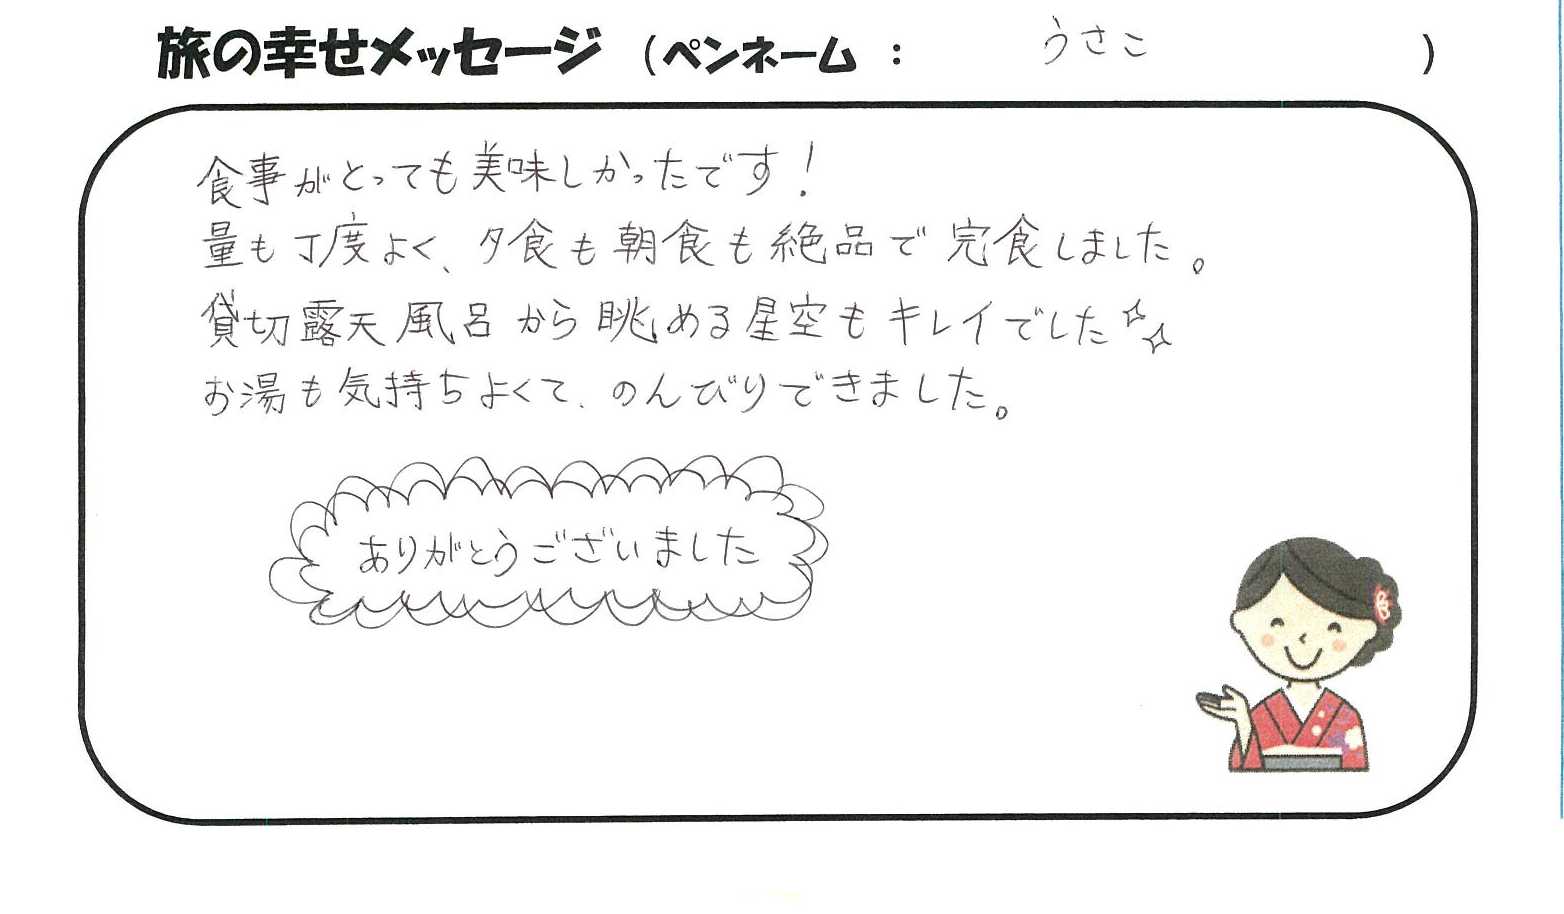 旅の幸せメッセージ (ペンネーム : うさこ )
食事がとっても美味しかったです!
量も丁度よく、夕食も朝食も絶品で完食しました。
貸切露天風呂から眺める星空もキレイでした✨
お湯も気持ちよくて、のんびりできました。
ありがとうございました